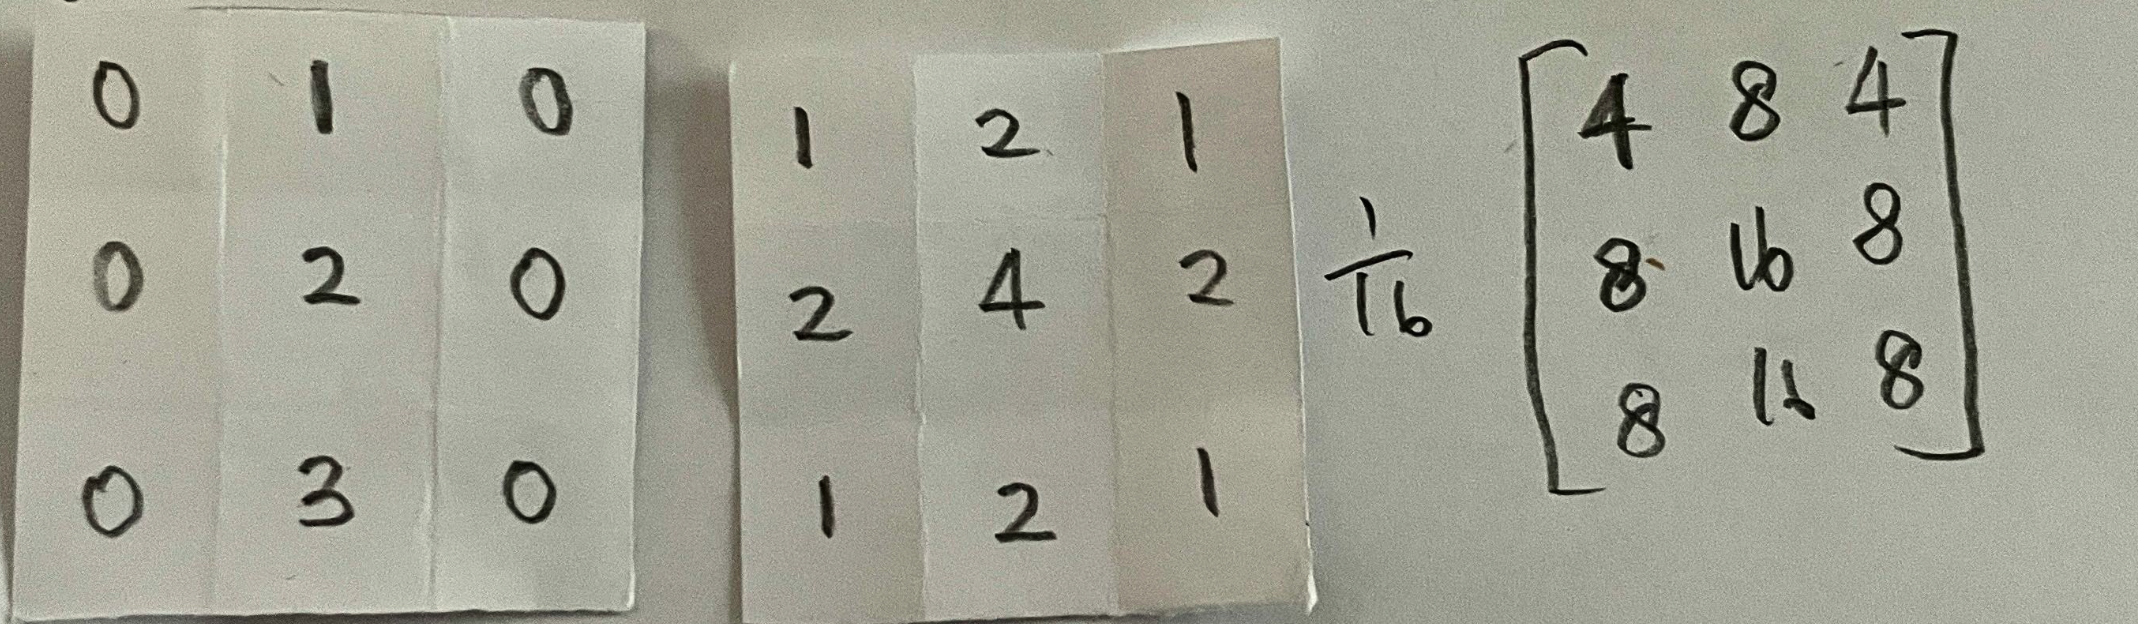 0 1 0
0 2 0
0 3 0
1 2 1
2 4 2
1 2 1
1/16
4 8 4
8 16 8
8 16 8